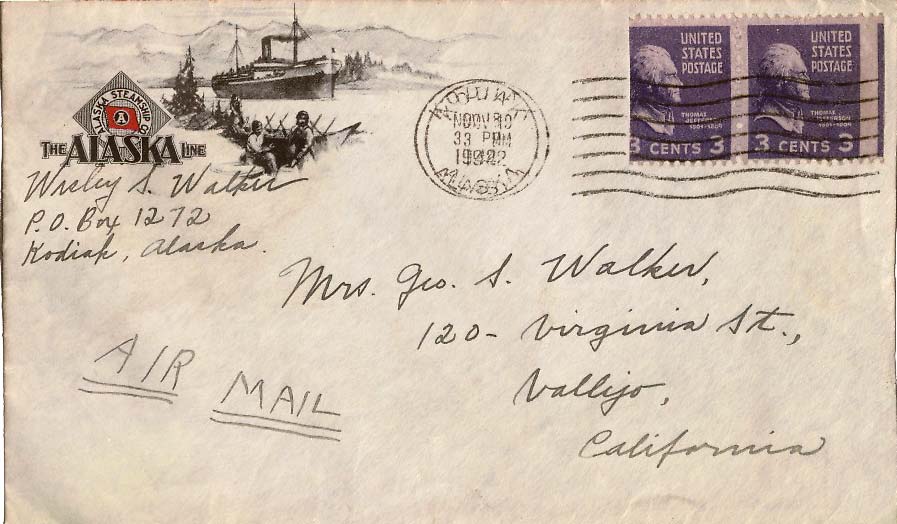 ALASKA STEAMSHIP CO.
A
THE ALASKA LINE
Wesley S. Walker
P.O. Box 1272
Kodiak, Alaska.
UNITED STATES POSTAGE
THOMAS JEFFERSON
1801-1809
3 CENTS 3
UNITED STATES POSTAGE
THOMAS JEFFERSON
1801-1809
3 CENTS 3
Mrs. Geo. S. Walker,
120- Virginia St.,
Vallejo,
California
AIR
MAIL